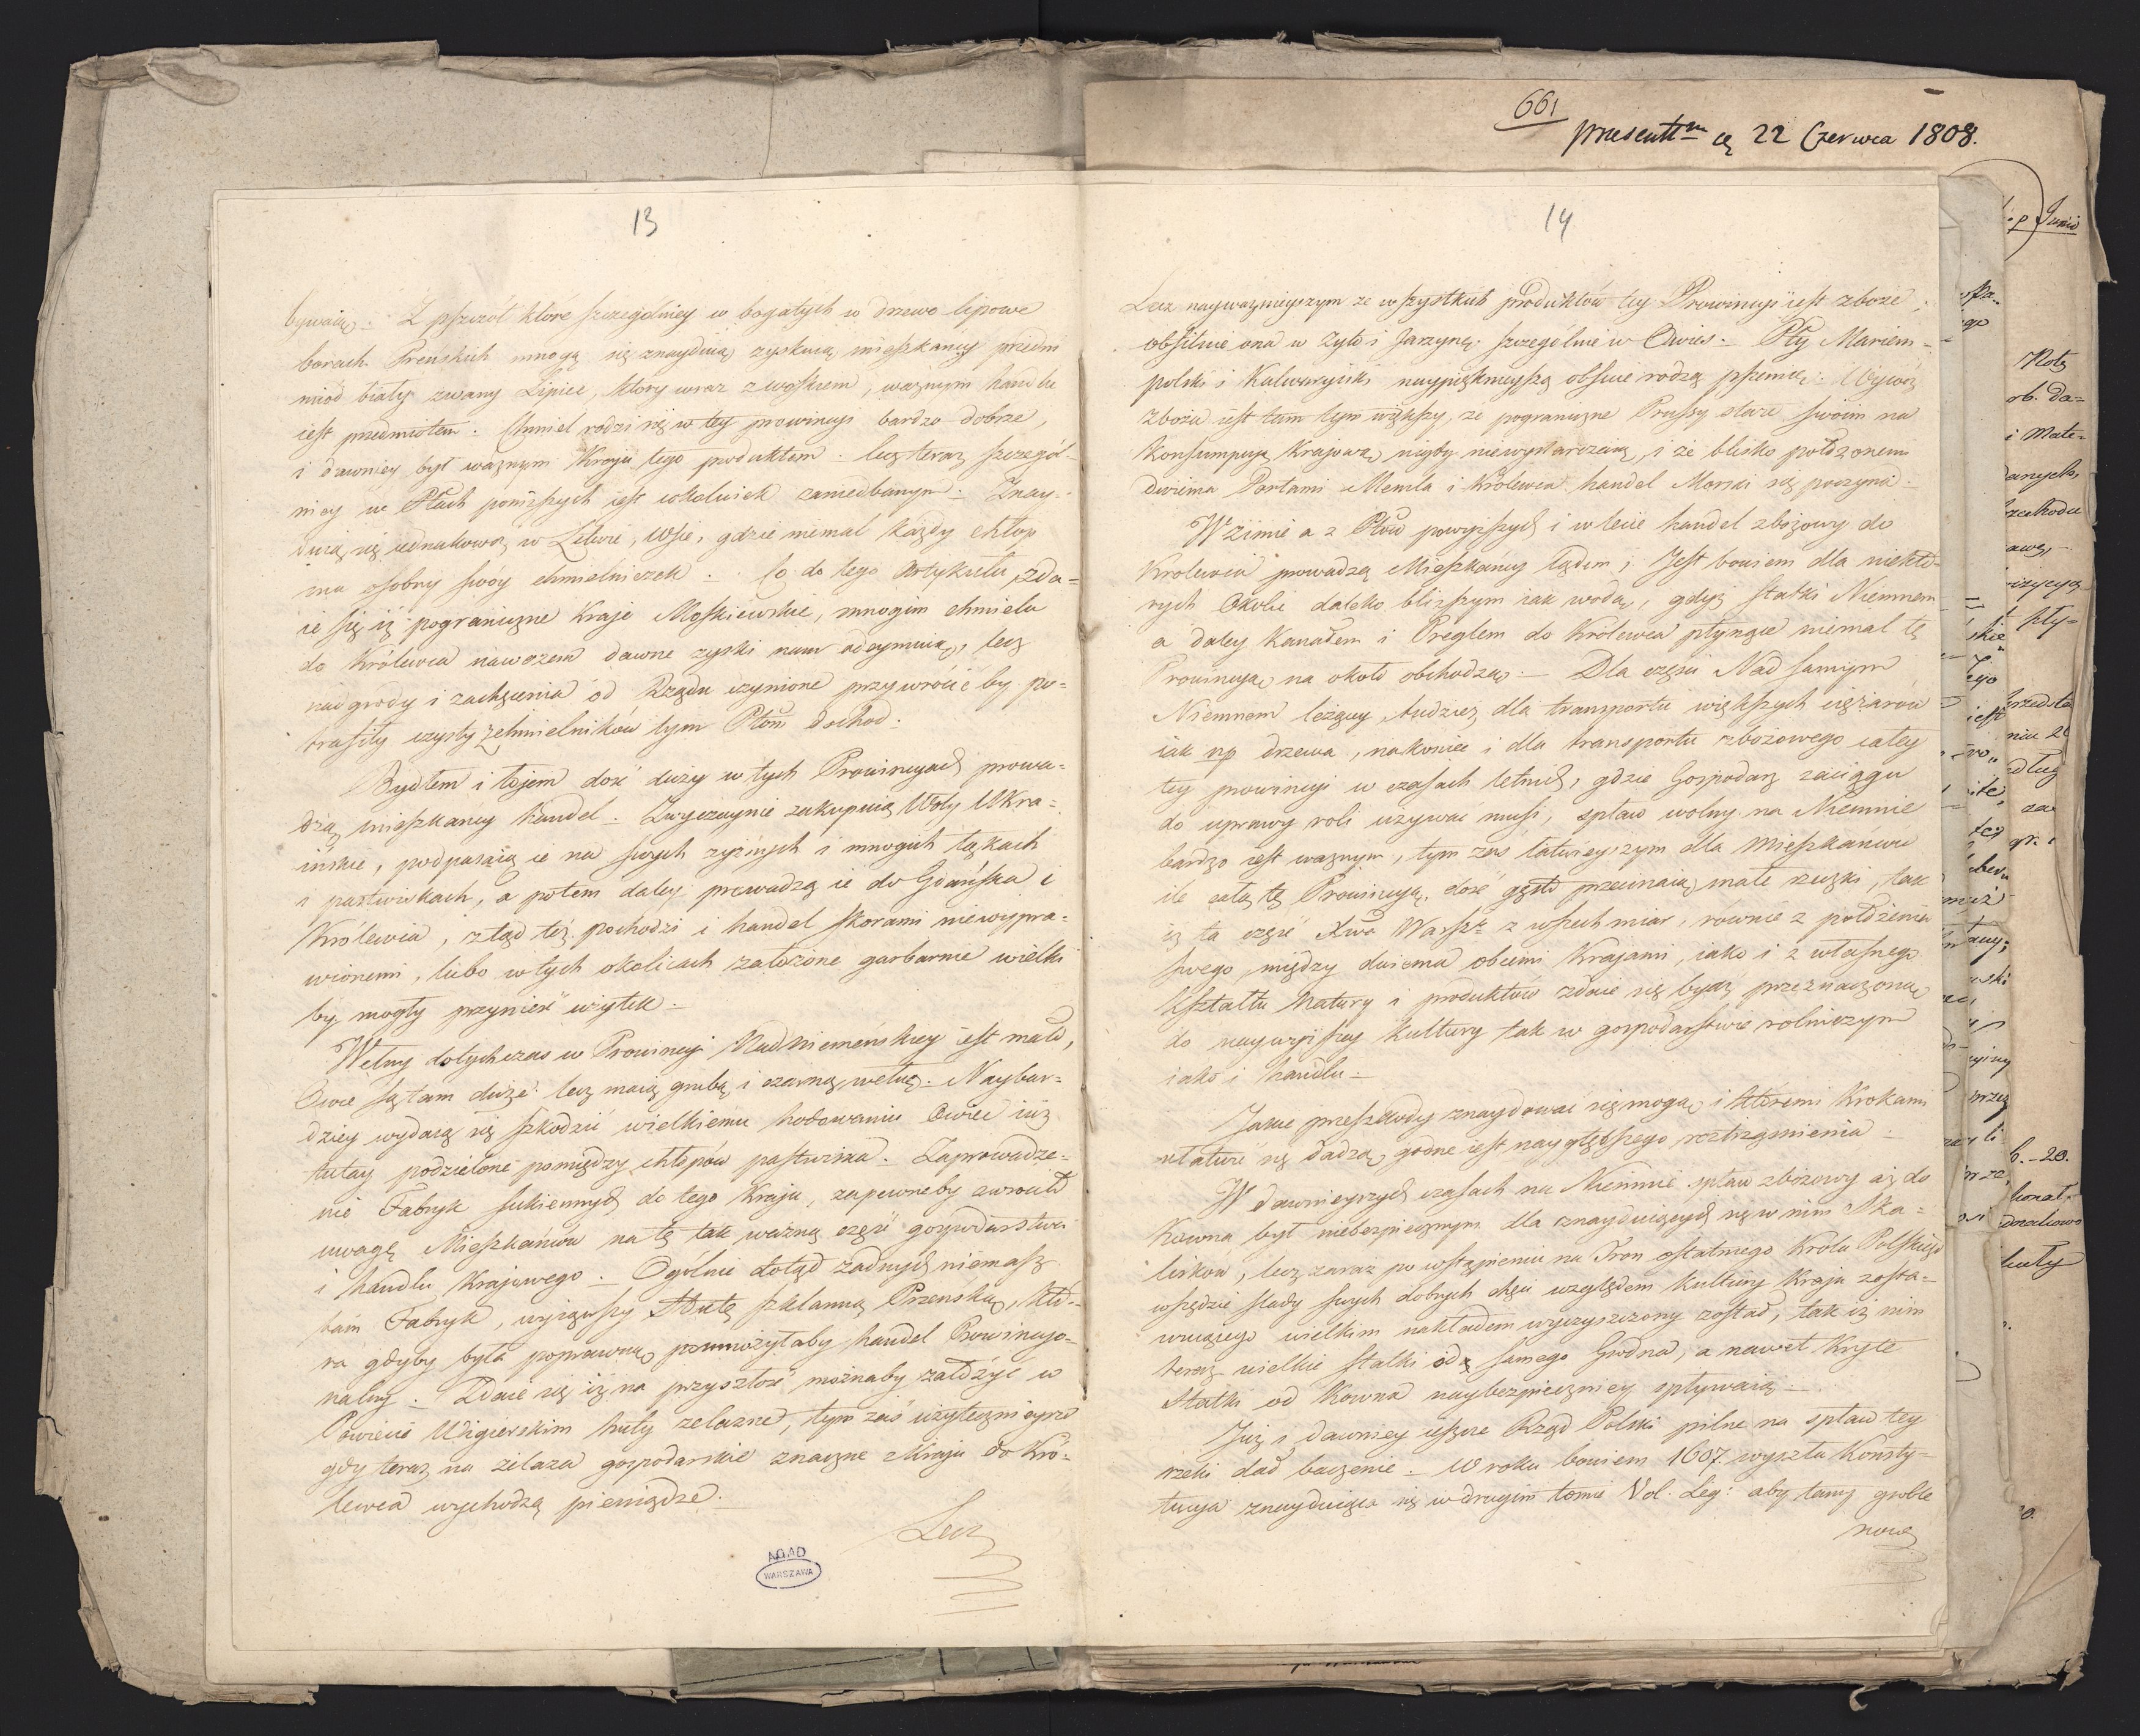 13
bywaią. Z pszczół które szczególniey w bogatych w drzewo lipowe
borach Preńskich mnogą się znayduią zyskuią mieszkańcy przedni
miód biały zwany Lipiec, który wraz z woskiem, ważnym handlu
iest przedmiotem. Chmiel rodzi się w tey prowincyi bardzo dobrze,
i dawniey był ważnym Kraju tego produktem. lecz teraz szczegól-
niey w Płach poniższych iest cokolwiek zaniedbanym. Znay-
duią się iednakowoż w Litwie, Wsie, gdzie niemal każdy chłop
ma osobny swóy chmielniczek. Co do tego Artykułu, zda-
ie się iż pograniczne Kraje Moskiewskie, mnogim chmielu
do Królewca nawozem dawne zyski nam odeymuią, lecz
nadgrody i zachęcenia od Rządu czynione przywrócić by po-
trafiły czysty z chmielników tym Płom dochod.
Bydłem i łojem dość duży w tych Prowincyach prowa-
dzą mieszkancy handel. Zwyczaynie zakupuią Woły Ukra-
inskie, podpasaią ie na swych zyżnych i mnogich łąkach
i pastwiskach, a potem daley prowadzą ie do Gdańska i
Królewca, ztąd też pochodzi i handel skorami niewypra-
wionemi, lubo w tych okolicach założone garbarnie wielki
by mogły przynieść użytek.
Wełny dotychczas w Prowincyi Nadniemeńskiey iest mało,
Owce są tam duże lecz maią grubą i czarną wełnę. Naybar-
dziey wydaią się szkodzić wielkiemu hodowaniu Owiec iuż
tutay podzielone pomiędzy chłopów pastwiska. Zaprowadze-
nie Fabryk sukiennych do tego Kraju, zapewneby zwrociło
uwagę Mieszkańców na tę tak ważną część gospodarstwa
i handlu Krajowego. Ogólnie dotąd żadnych niemasz
tam Fabryk, wyiąwszy Hutę szklanną Preńską, któ-
ra gdyby była poprawną pomnożyłaby handel Prowincyo-
nalny. Zdaie się iż na przyszłość możnaby założyć w
Powiecie Wigierskim huty żelazne, tym zaś użytecznieysze
gdy teraz na żelaza gospodarskie znaczne z Kraju do Kró-
lewca wychodzą pieniądze.
Lecz
AGAD
WARSZAWA
661
presentt<sup>m</sup> 22 Czerwca 1808.
14
Lecz nayważnieyszym ze wszystkich produktów tey Prowincyi iest zboże;
obfituie ona w żyto i Jarzynę szczególnie w Owies. Pty Mariem-
polski i Kalwaryiski naypięknieyszą obficie rodzą pszenicę. Wywóz
zboża iest tam tym większy, że pograniczne Prussy stare swoim na
konsumpcyą krajową nigdy niewystarczaią, i że blisko położonemi
dwiema Portami Memla i Królewca handel Morski się poczyna.
W zimie a z Płow powyższych i w lecie handel zbożowy do
Krolewca prowadzą Mieszkańcy lądem; Jest bowiem dla niektó-
rych Okolic daleko bliższym iak wodą, gdyż statki Niemnem
a daley Kanałem i Preglem do Królewca płynące niemal tę
Prowincyą na około obchodzą. Dla części Nad samym
Niemnem leżącey, tudzież dla transportu większych ciężarów
iak np drzewa, nakoniec i dla transportu zbożowego całey
tey prowincyi w czasach letnich, gdzie Gospodarz zaciągu
do uprawy roli używać musi, spław wolny na Niemnie
bardzo iest ważnym, tym zaś łatwieyszym dla Mieszkańców
ile całą tę Prowincyą dość gęsto przecinaią małe rzeczki, tak
iż ta część Xwa Warsz<sup>o</sup> z wszech miar, rownie z położenia
swego między dwiema obcemi Krajami, iako i z własnego
kształtu Natury i produktów zdaie się bydź przeznaczoną
do naywyższey kultury tak w gospodarstwie rolniczym
iako i handlu.
Jakie przeszkody znaydować się mogą i któremi Krokami
ułatwić się dadzą, godne iest naygłębszego roztrząśnienia.
W dawnieyszych czasach na Niemnie spław zbożowy aż do
Kowna był niebezpiecznym dla znayduiących się w nim Ska-
lisków, lecz zaraz po wstąpieniu na Tron ostatniego Króla Polskiego
wszędzie ślady swych dobrych chęci względem kultury Kraju zosta-
wuiącego wielkim nakładem wyczyszczony został, tak iż nim
teraz wielkie statki od samego Grodna, a nawet Kryte
Statki od Kowna naybezpieczniey spływaią.
Już i dawniey ieszcze Rząd Polski pilne na spław tey
rzeki dał baczenie. W roku bowiem 1607 wyszła Konsty-
tucya znayduiąca się w drugim tomie Vol. Leg: aby tamy groble
nowe
Junii
Notę
ob. da-
i Mate-
b. - 20.